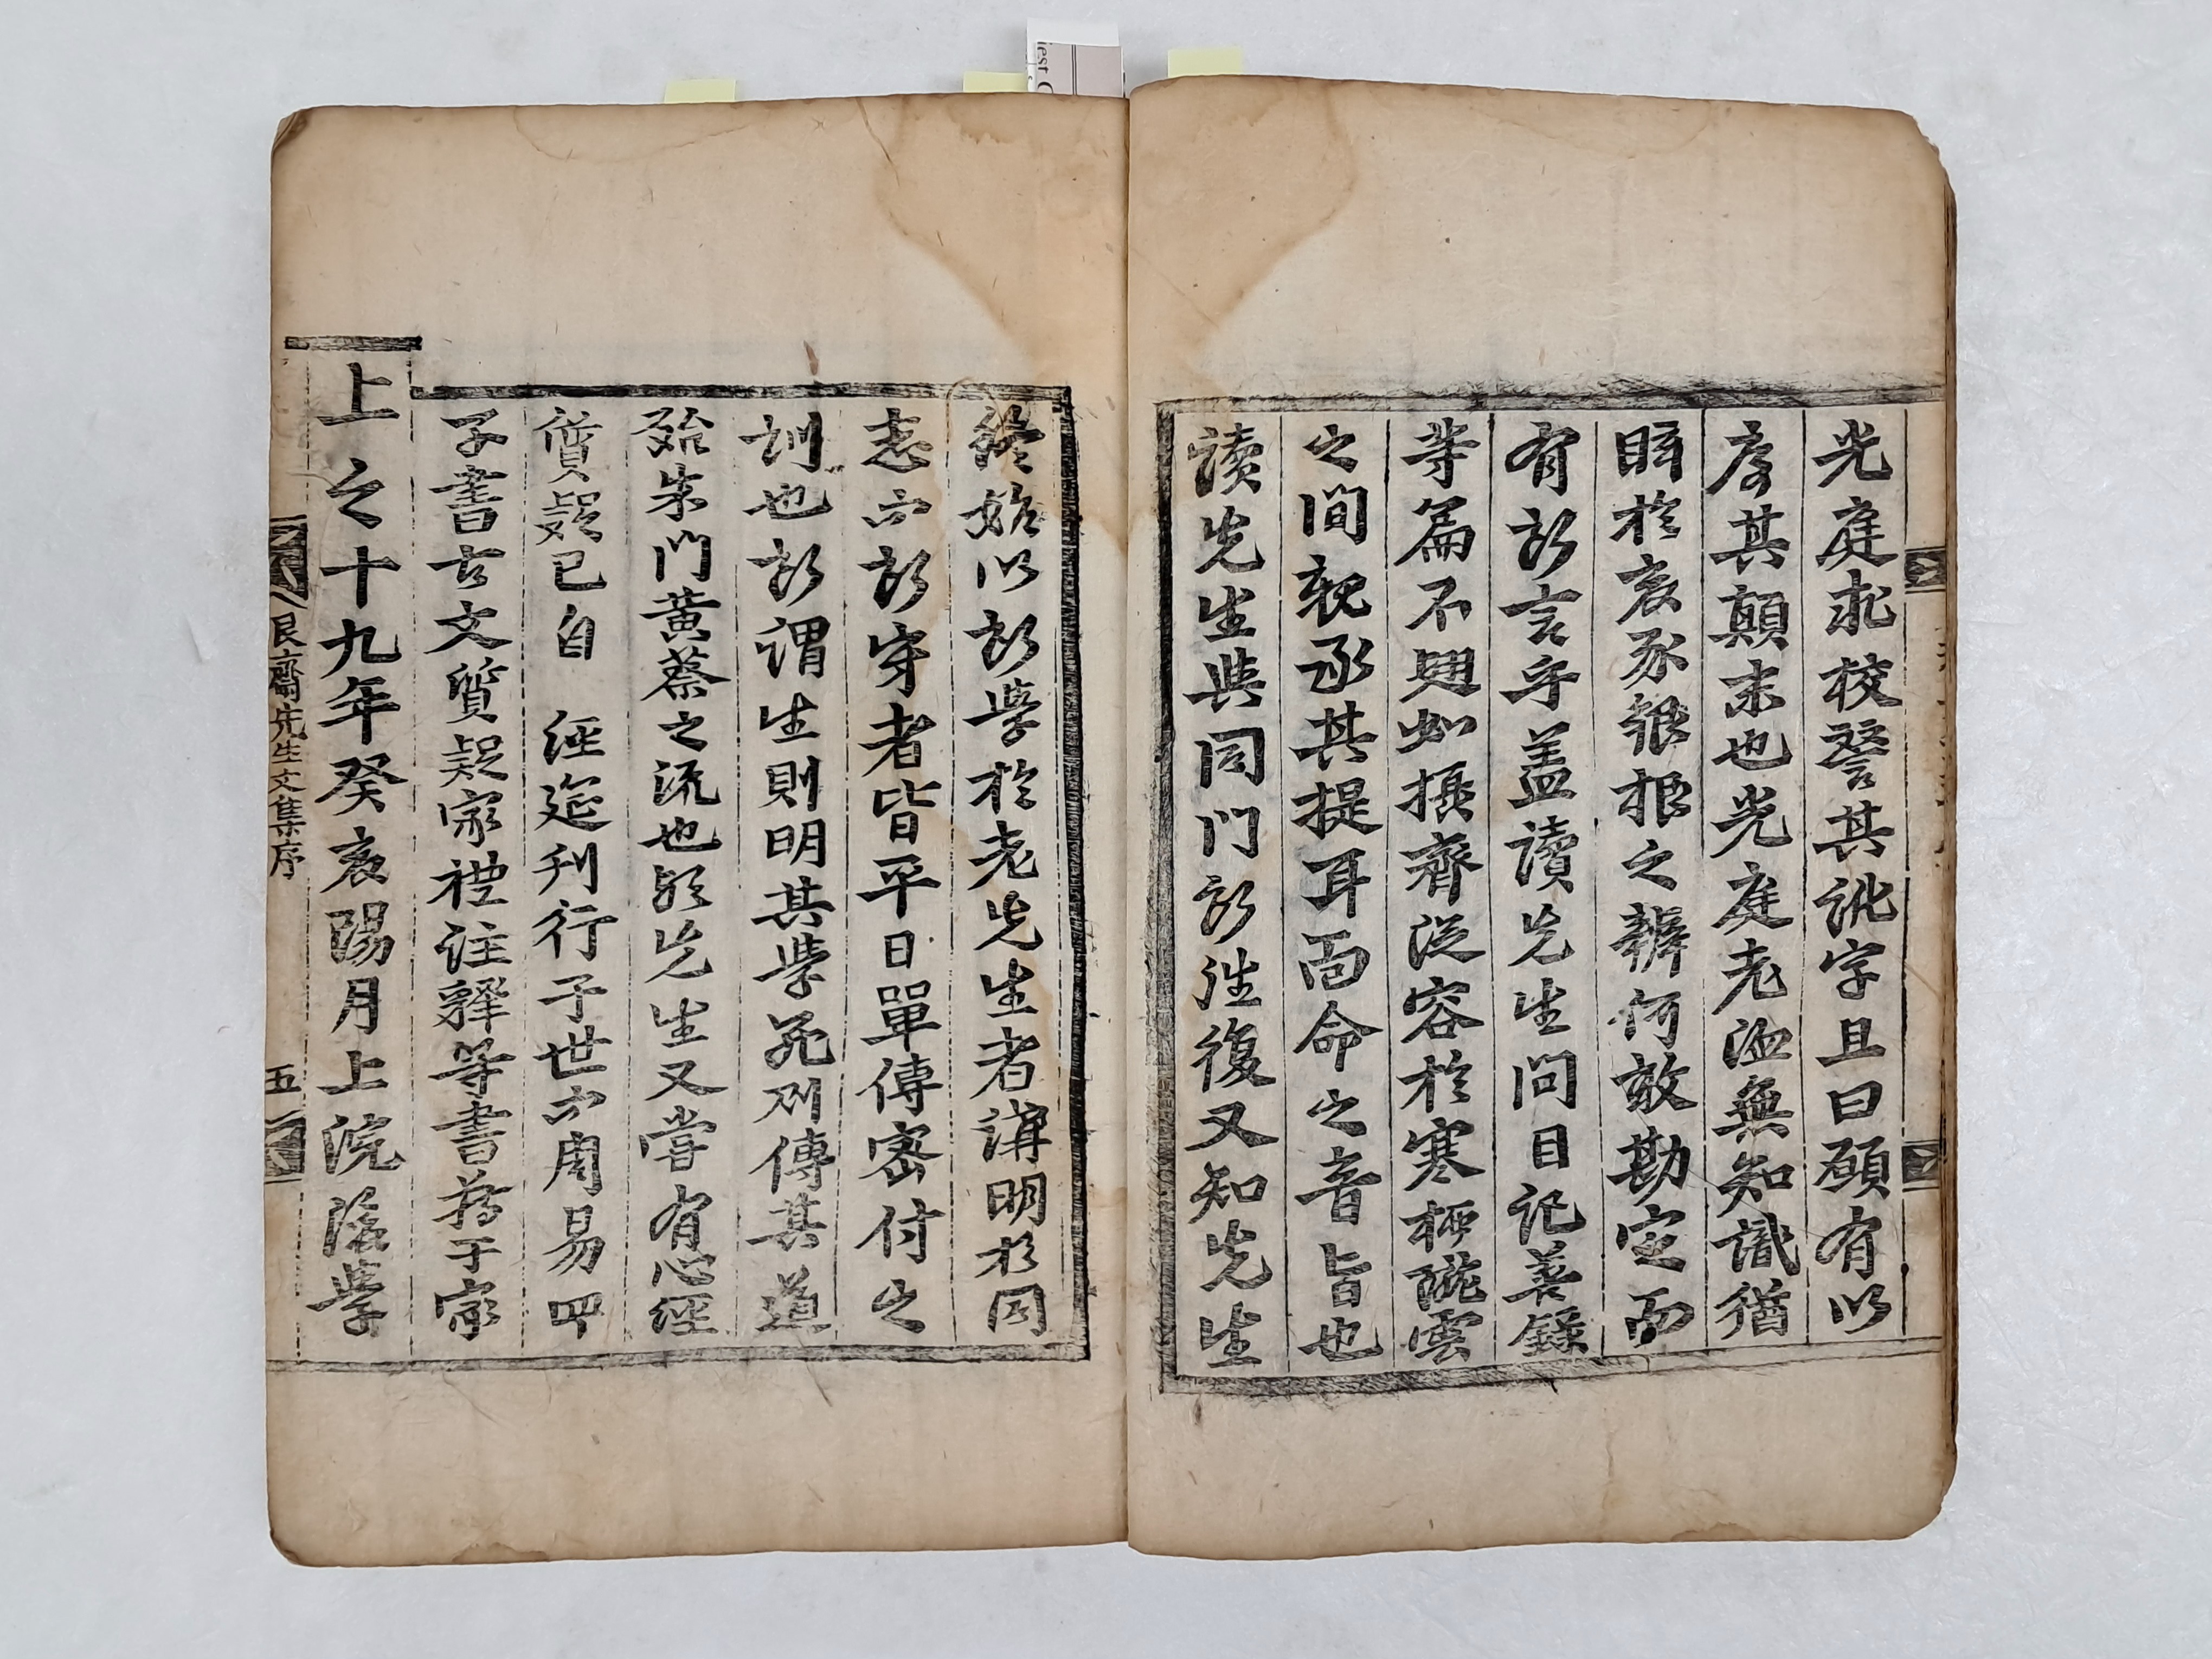 光庭求校讐其訛字且曰願有以
序其顚末也光庭老洫無知識猶
眩於亥豕銀根之辨何敢勘定而
有所言乎盖讀先生問目記善錄
等篇不翅如摳齊從容於寒栖隴雲
之間親承其提耳面命之音旨也
讀先生與同門所往復又知先生
終始以所學於老先生者講明於同
志而所守者皆平日單傳密付之
訓也所謂生則明其學死則傳其道
殆朱門黃蔡之流也欤先生又嘗有心經
質疑已自 經筵刊行于世而周易四
子書古文質疑家禮註釋等書藏于家
上之十九年癸亥陽月上浣後學
艮齋先生文集序
五
iest C